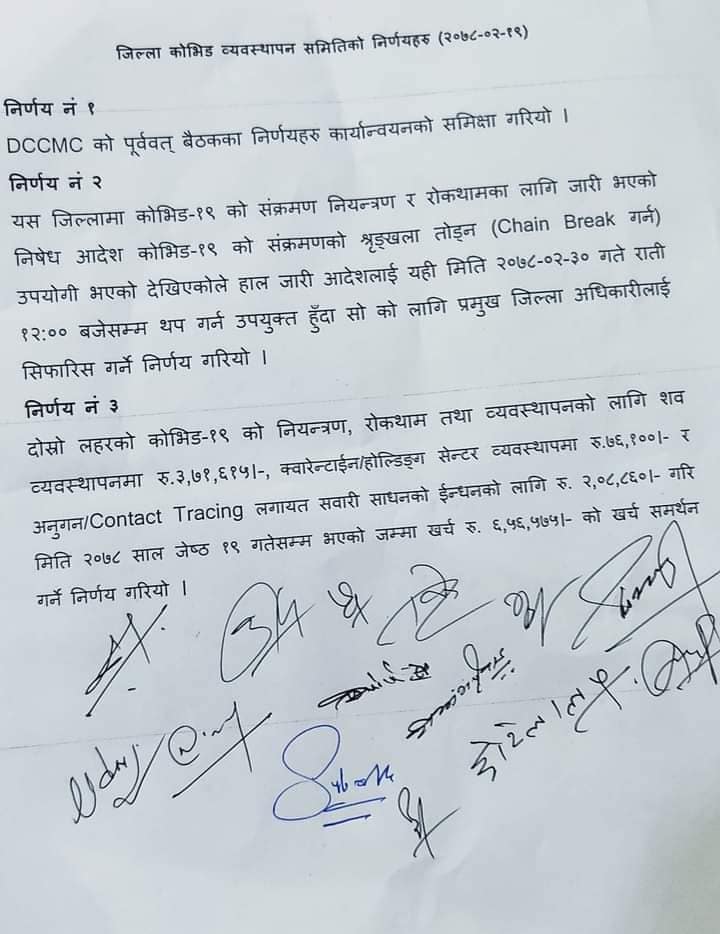 जिल्ला कोभिड व्यवस्थापन समितिको निर्णयहरु (२०७८-०२-१९)
निर्णय नं १
DCCMC को पूर्ववत् बैठकका निर्णयहरु कार्यान्वयनको समिक्षा गरियो ।
निर्णय नं २
यस जिल्लामा कोभिड-१९ को संक्रमण नियन्त्रण र रोकथामका लागि जारी भएको
निषेध आदेश कोभिड-१९ को संक्रमणको श्रृङ्खला तोड्न (Chain Break गर्न)
उपयोगी भएको देखिएकोले हाल जारी आदेशलाई यही मिति २०७८-०२-३० गते राती
१२:०० बजेसम्म थप गर्न उपयुक्त हुँदा सो को लागि प्रमुख जिल्ला अधिकारीलाई
सिफारिस गर्ने निर्णय गरियो ।
निर्णय नं ३
दोस्रो लहरको कोभिड-१९ को नियन्त्रण, रोकथाम तथा व्यवस्थापनको लागि शव
व्यवस्थापनमा रु.३,७१,६१५।-, क्वारेन्टाईन/होल्डिङ्ग सेन्टर व्यवस्थापमा रु.७६,१००।- र
अनुगन/Contact Tracing लगायत सवारी साधनको ईन्धनको लागि रु. २,०८,८६०।- गरि
मिति २०७८ साल जेष्ठ १९ गतेसम्म भएको जम्मा खर्च रु. ६,५६,५७५।- को खर्च समर्थन
गर्ने निर्णय गरियो ।